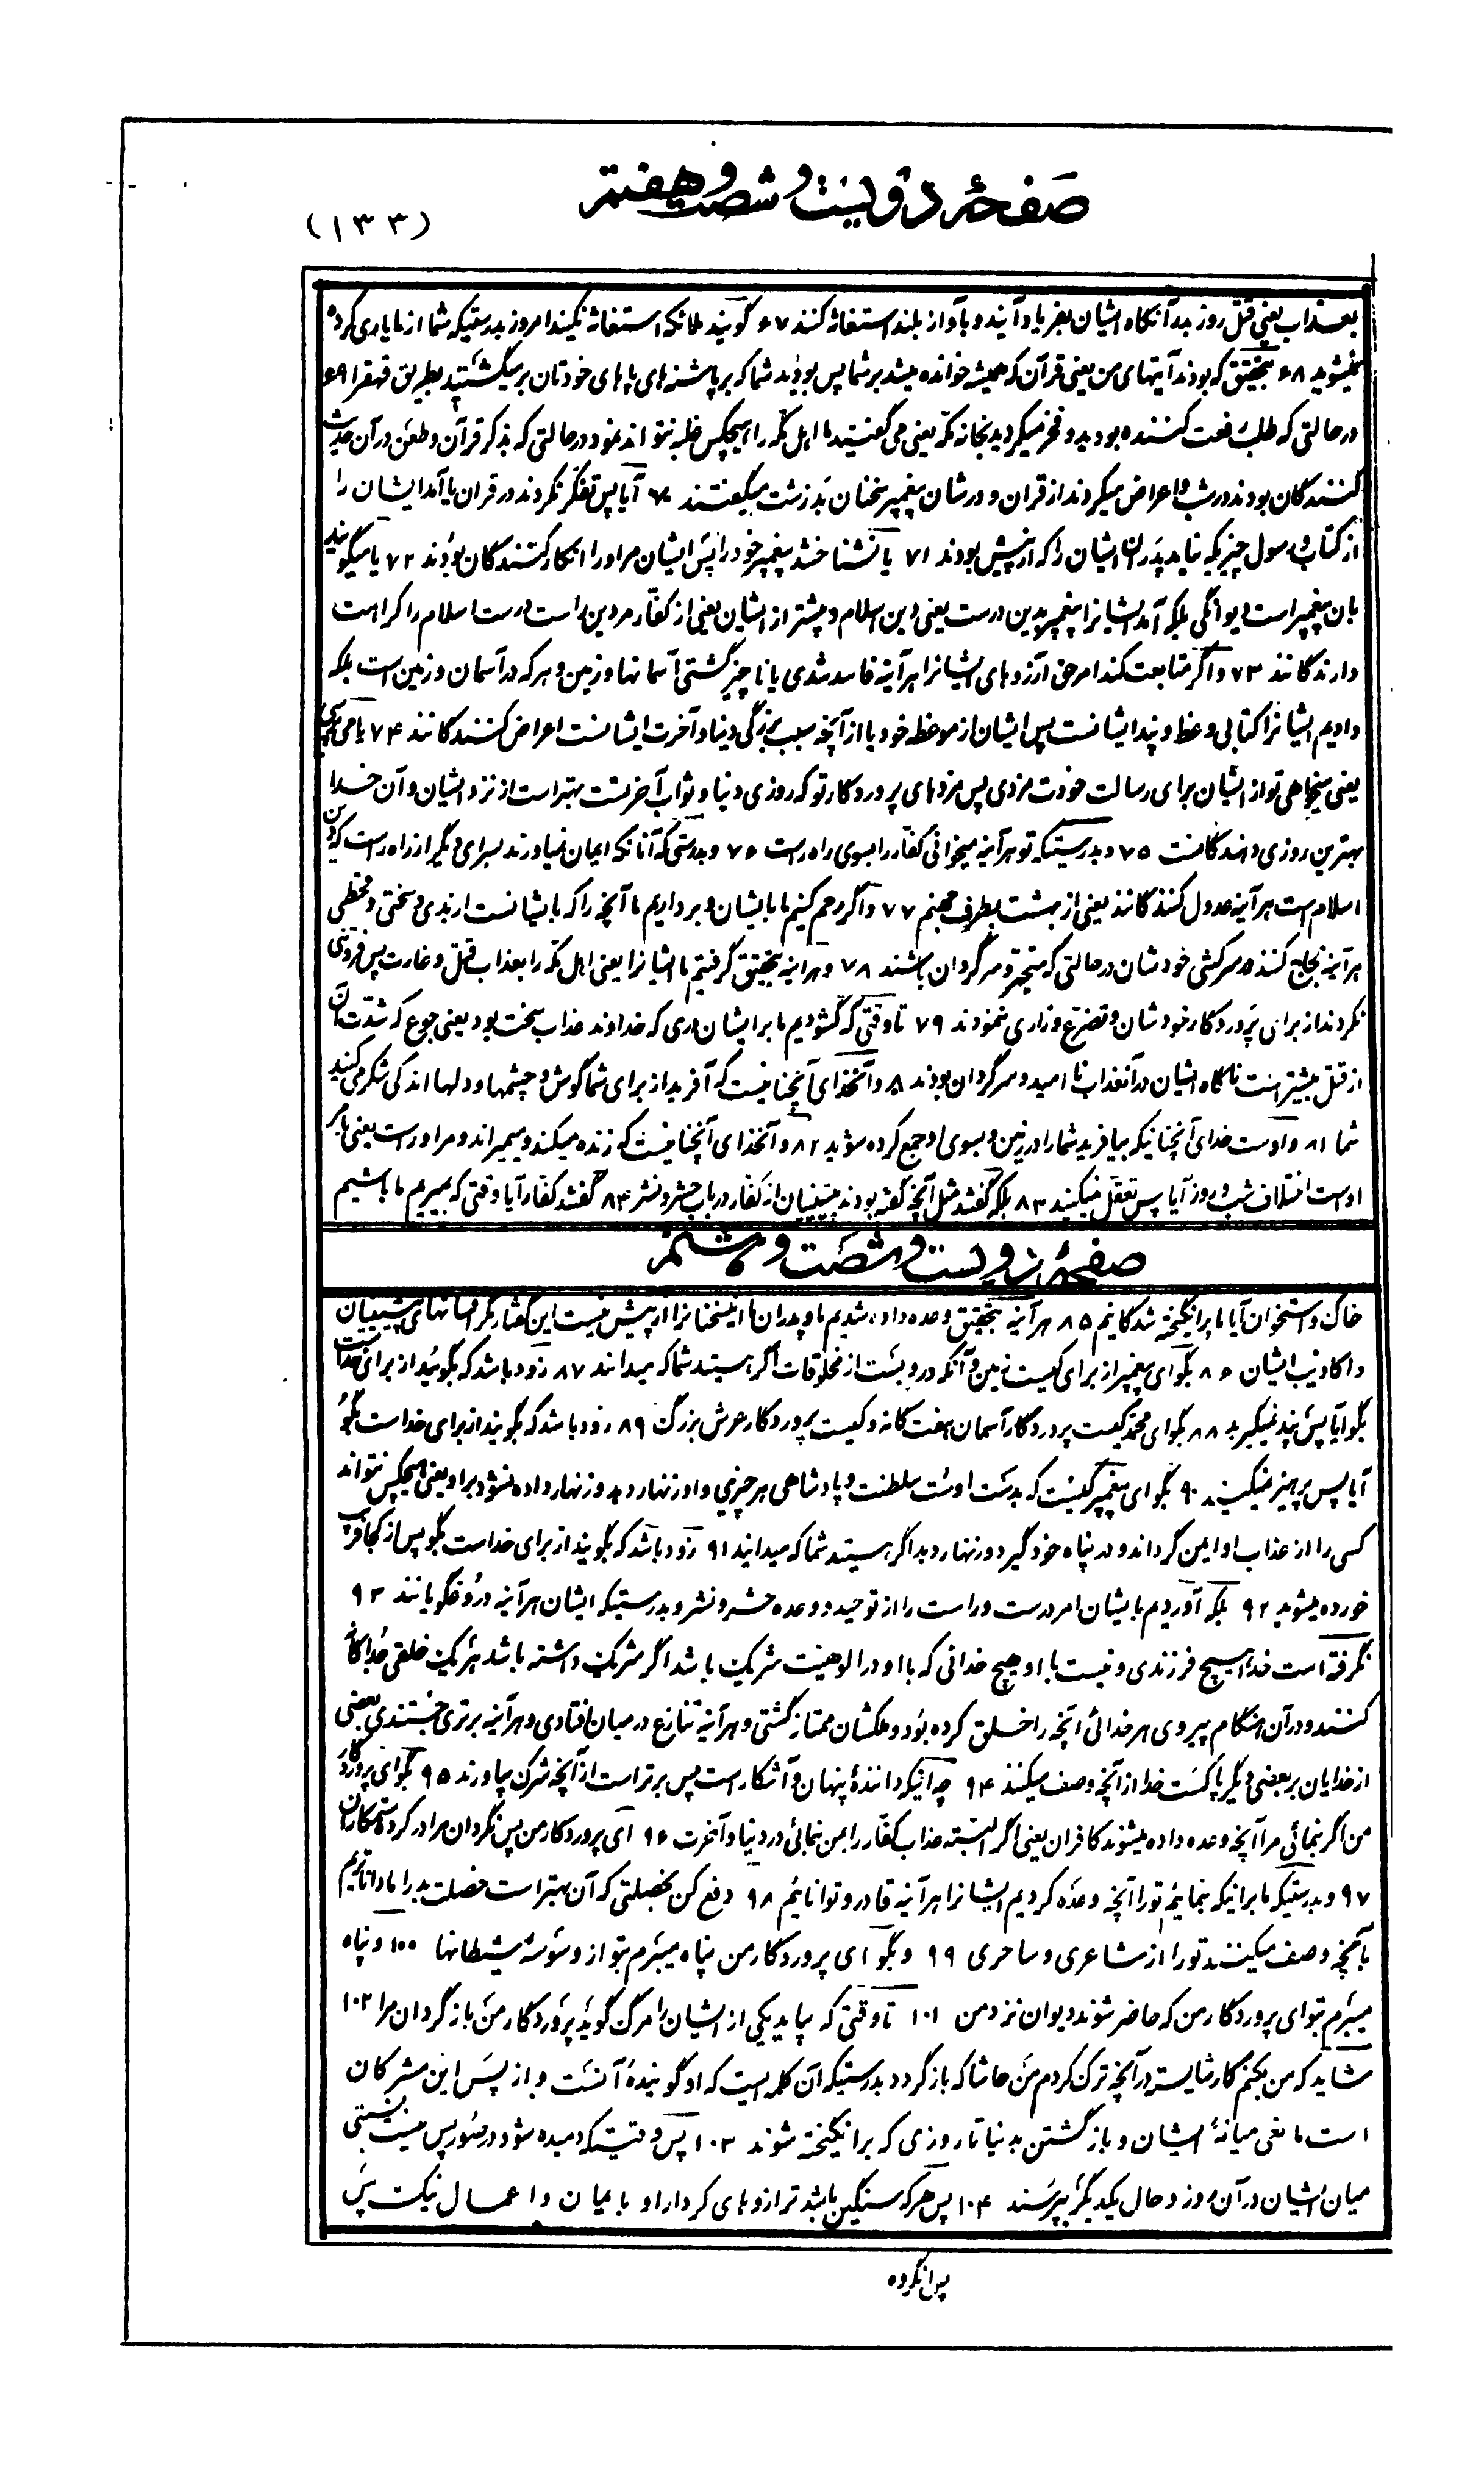 صفحهٔ دویست و شصت و هفتم
(۱۳۳)
بعذاب یعنی قتل روز بدر آنگاه ایشان بفریاد آیند و بآواز بلند استغاثه کنند ۶۷ گویند ملائکه استغاثه نکنید امروز بدرستیکه شما از ما یاری کرده
نمیشوید ۶۸ بتحقیق که بودند آیتهای من یعنی قرآن که همیشه خوانده میشد بر شما پس بودید شما که بر پاشنه های پاهای خودتان برمیگشتید بطریق قهقرا ۶۹
در حالتی که طلب رفعت کننده بودید و فخر میکردید بخانه مکه یعنی می گفتید ما اهل مکه را هیچکس غلبه نتواند نمود در حالتی که بذکر قرآن و طعن در آن حدیث
کنندگان بودند در شب و اعراض میکردند از قران و در شان پیغمبر سخنان بد زشت میگفتند ۷۰ آیا پس تفکر نکردند در قران یا آمد ایشان را
از کتاب و رسول چیزیکه نیامد پدران ایشان را که از پیش بودند ۷۱ یا نشناختند پیغمبر خود را پس ایشان مر او را انکار کنندگان بودند ۷۲ یا میگویند
بان پیغمبر است دیوانگی بلکه آمد ایشانرا پیغمبر بدین درست یعنی دین اسلام و بیشتر از ایشان یعنی از کفار مر دین راست درست اسلام را کراهت
دارندگانند ۷۳ و اگر متابعت کند امر حق آرزوهای ایشانرا هر آینه فاسد شدی یا ناچیز گشتی آسمانها و زمین و هر که در آسمان و زمین است بلکه
دادیم ایشانرا کتابی وعظ و پند ایشانست پس ایشان از موعظه خود یا از آنچه سبب بزرگی دنیا و آخرت ایشانست اعراض کنندگانند ۷۴ یا می پرسی
یعنی میخواهی تو از ایشان برای رسالت خودت مزدی پس مزدهای پروردگار تو که روزی دنیا و ثواب آخرتست بهتر است از نزد ایشان و آن خدا
بهترین روزی دهندگانست ۷۵ و بدرستیکه تو هر آینه میخوانی کفار را بسوی راه راست ۷۶ و بدرستی که آنانکه ایمان نمیاورند بسرای دیگر از راه راست که دین
اسلام است هر آینه عدول کنندگانند یعنی از بهشت بطرف جهنم ۷۷ و اگر رحم کنیم ما بایشان و برداریم ما آنچه را که بایشانست از بدی و سختی و قحطی
هر آینه لجاج کنند در سرکشی خودشان در حالتی که متحیر و سرگردان باشند ۷۸ و هر آینه بتحقیق گرفتیم ما ایشانرا یعنی اهل مکه را بعذاب قتل و غارت پس فروتنی
نکردند از برای پروردگار خودشان و تضرع و زاری ننمودند ۷۹ تا وقتی که گشودیم ما بر ایشان دری که خداوند عذاب سخت بود یعنی جوع که شدت آن
از قتل بیشتر است ناگاه ایشان در آنعذاب نا امید و سرگردان بودند ۸۰ و آنخدای آنچنانیست که آفرید از برای شما گوش و چشمها و دلها اندکی شکر می کنید
شما ۸۱ و اوست خدای آنچنانیکه بیافرید شما را در زمین و بسوی او جمع کرده شوید ۸۲ و آنخدای آنچنانیست که زنده میکند و میمیراند و مر اوراست یعنی بامر
اوست اختلاف شب و روز آیا پس تعقل نمیکنید ۸۳ بلکه گفتند مثل آنچه گفته بودند پیشینیان از کفار در باب حشر و نشر ۸۴ گفتند کفار آیا وقتی که بمیریم ما باشیم
صفحهٔ دویست و شصت و هشتم
خاک و استخوان آیا ما برانگیخته شدگانیم ۸۵ هر آینه بتحقیق وعده داده شدیم ما و پدران ما اینسخنانرا از پیش نیست این گفتار مگر افسانهای پیشینیان
و اکاذیب ایشان ۸۶ بگو ای پیغمبر از برای کیست زمین و آنکه در وست از مخلوقات اگر هستید شما که میدانند ۸۷ زود باشد که بگویند از برای خداست
بگو آیا پس پند نمیگیرید ۸۸ بگو ای محمد کیست پروردگار آسمان هفت گانه و کیست پروردگار عرش بزرگ ۸۹ زود باشد که بگویند از برای خداست بگو
آیا پس پرهیز نمیکنید ۹۰ بگو ای پیغمبر کیست که بدست اوست سلطنت و پادشاهی هر چیزی و او زنهار دهد و زنهار داده نشود بر او یعنی هیچکس نتواند
کسی را از عذاب او ایمن گرداند و در پناه خود گیرد و زنهار دهد اگر هستید شما که میدانید ۹۱ زود باشد که بگویند از برای خداست بگو پس از کجا فریب
خورده میشوید ۹۲ بلکه آوردیم بایشان امر درست و راست را از توحید و وعده حشر و نشر و بدرستیکه ایشان هر آینه دروغگویانند ۹۳
نگرفته است خدا هیچ فرزندی و نیست با او هیچ خدائی که با او در الوهیت شریک باشد اگر شریک داشته باشد هر یک خلقی جداگانه
کنند و در آن هنگام پیروی هر خدائی آنچه را خلق کرده بود و ملکشان ممتاز گشتی و هر آینه تنازع در میان افتادی و هر آینه برتری جستندی بعضی
از خدایان بر بعضی دیگر پاکست خدا از آنچه وصف میکنند ۹۴ چه آنیکه دانندهٔ پنهان و آشکار است پس برتر است از آنچه شرک بیاورند ۹۵ بگو ای پروردگار
من اگر بنمائی مرا آنچه وعده داده میشوند کافران یعنی اگر البته عذاب کفار را بمن نمائی در دنیا و آخرت ۹۶ ای پروردگار من پس نگردان مرا در گروه ستمکاران
۹۷ و بدرستیکه ما برانیکه بنمائیم تو را آنچه وعده کردیم ایشانرا هر آینه قادر و توانائیم ۹۸ دفع کن بخصلتی که آن بهتر است خصلت بد را ما داناتریم
بآنچه وصف میکنند تو را از شاعری و ساحری ۹۹ و بگو ای پروردگار من پناه میبرم بتو از وسوسهٔ شیطانها ۱۰۰ و پناه
میبرم بتو ای پروردگار من که حاضر شوند دیوان نزد من ۱۰۱ تا وقتی که بیاید یکی از ایشان را مرگ گوید پروردگار من باز گردان مرا ۱۰۲
شاید که من بکنم کار شایسته در آنچه ترک کردم من حاشا که بازگردد بدرستیکه آن کلمه ایست که او گویندهٔ آنست و از پس این مشرکان
است مانعی میانهٔ ایشان و بازگشتن بدنیا تا روزی که برانگیخته شوند ۱۰۳ پس وقتیکه دمیده شود در صور پس نیست نسبتی
میان ایشان در آن روز و حال یکدیگر نپرسند ۱۰۴ پس هر که سنگین باشد ترازوهای کردار او بایمان و اعمال نیک پس
پس آنگروه